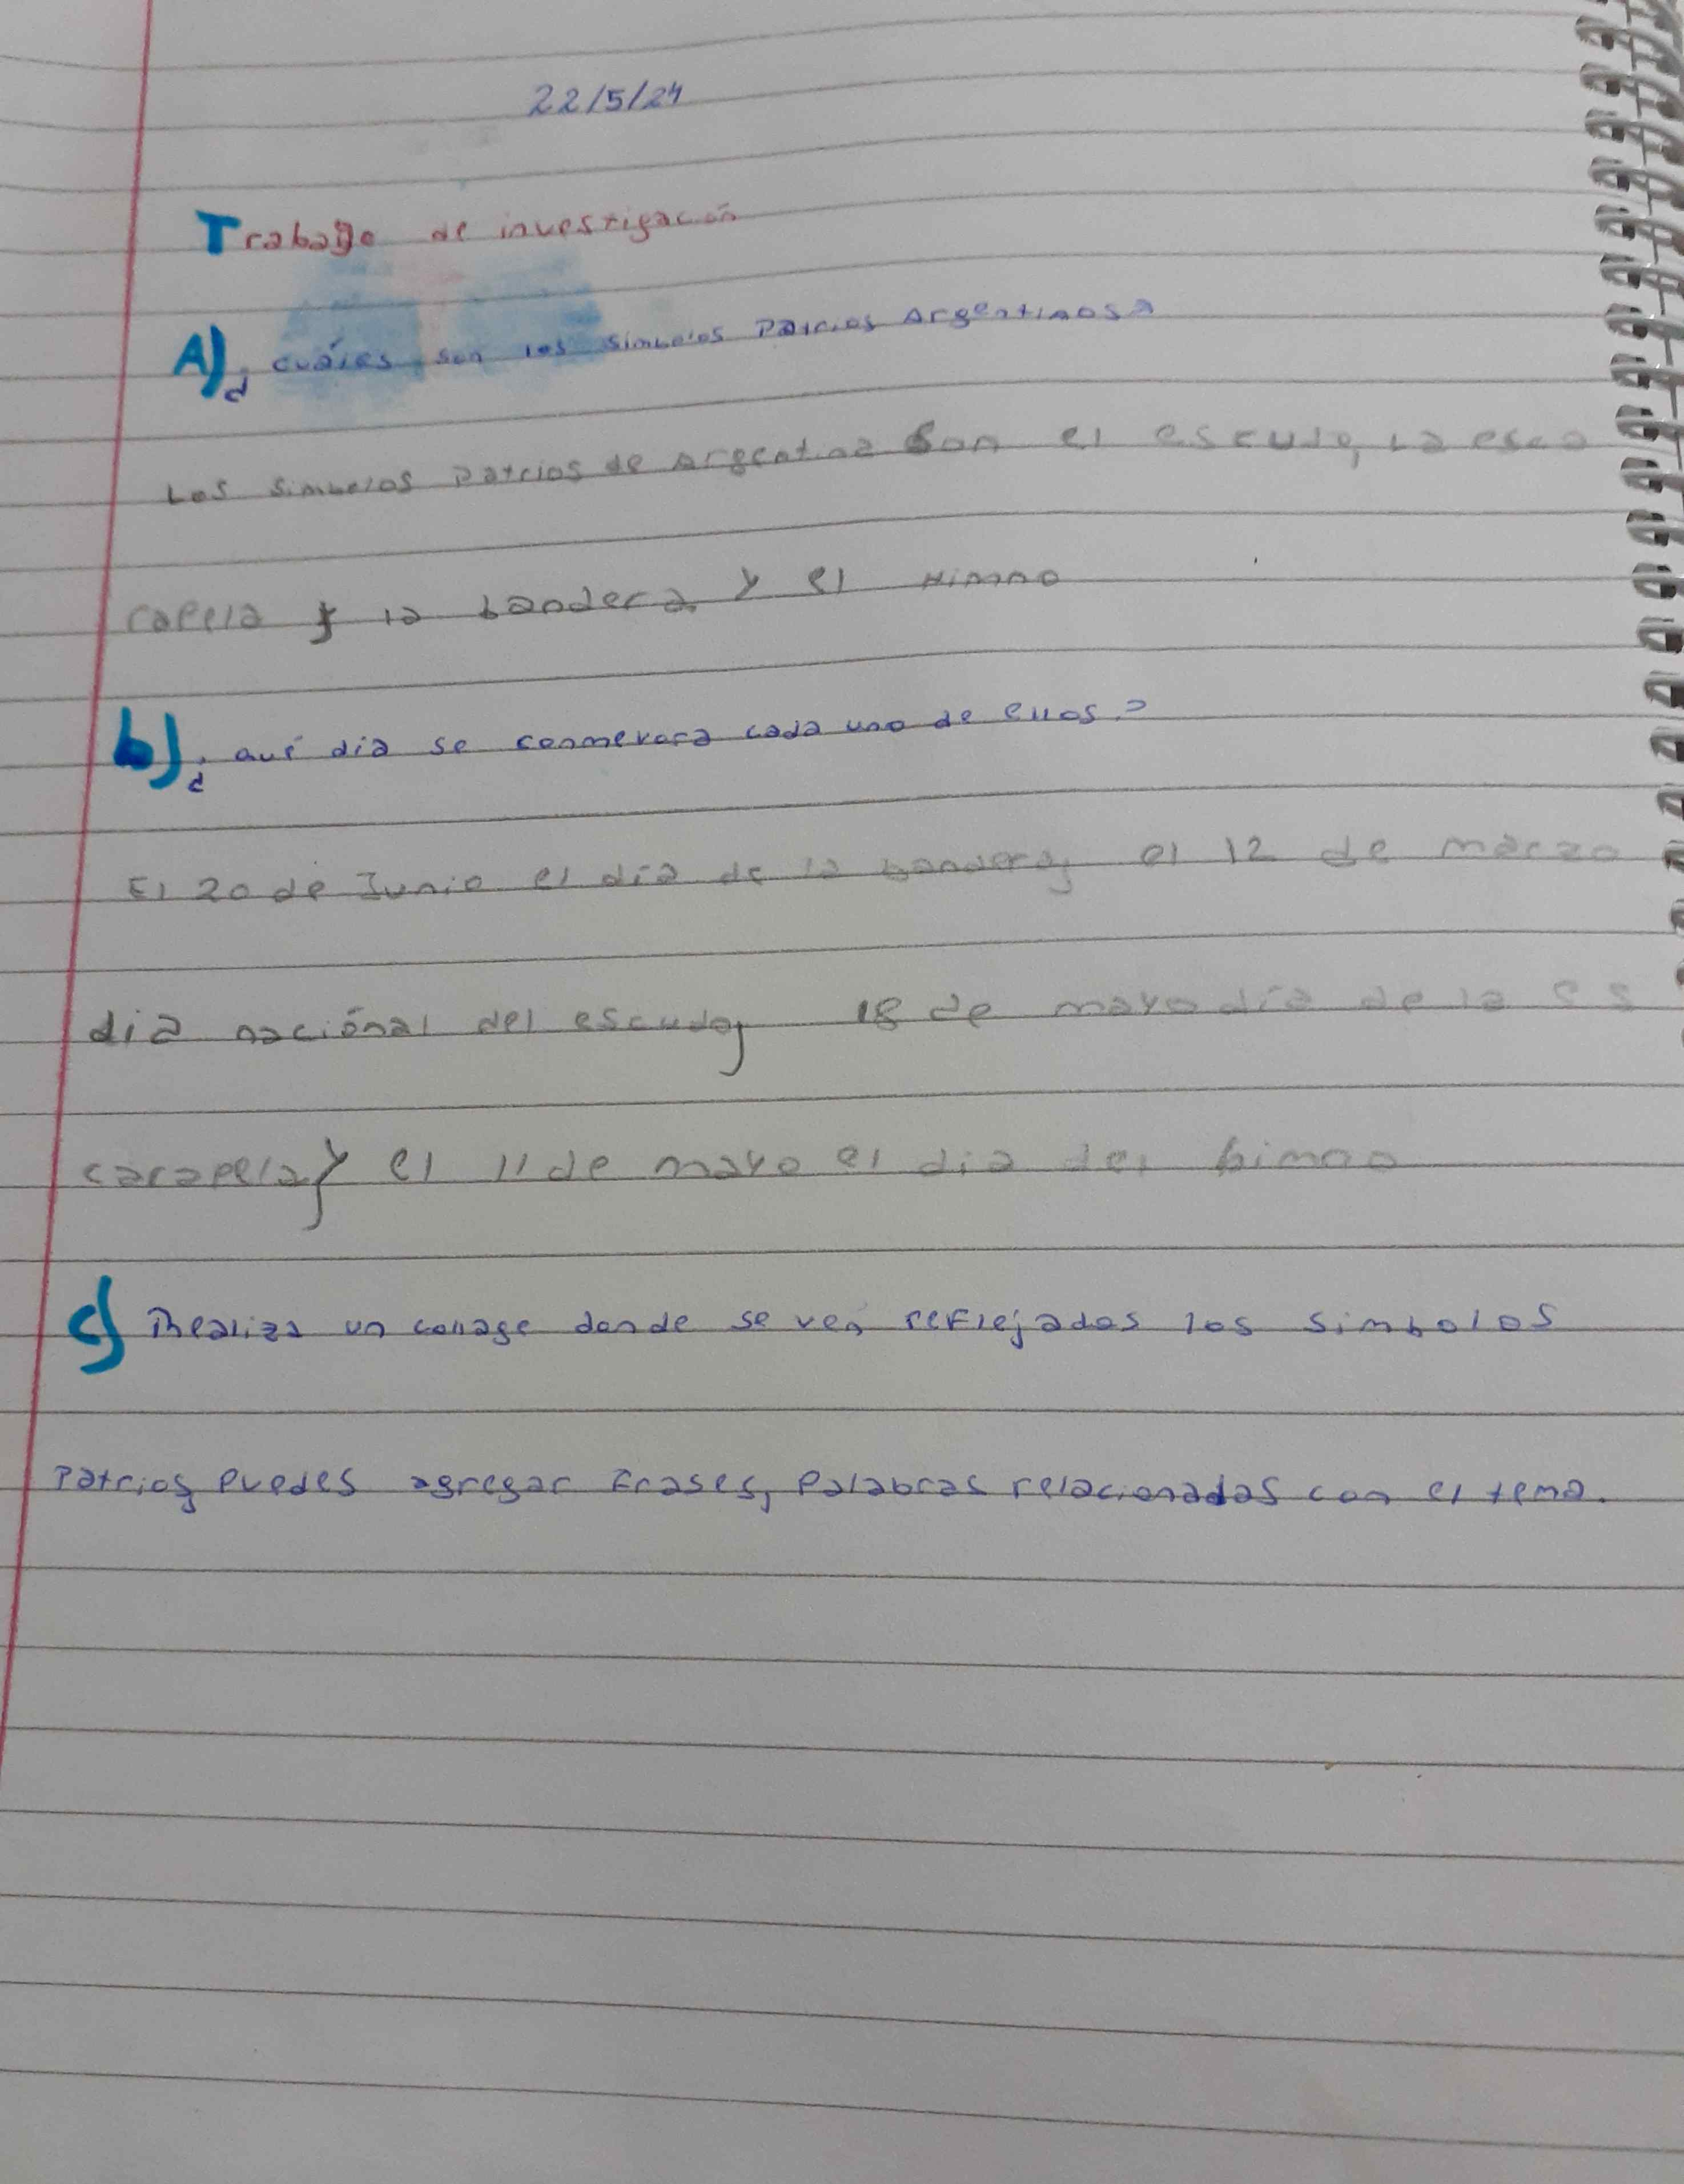 22/5/24
Trabajo de investigación
A) ¿cuáles son los simbolos Patrios Argentinos?
Los simbolos patrios de Argentina son el escudo, la esca
rapela y la bandera y el Himno
b) ¿qué dia se conmerora cada uno de ellos?
El 20 de Junio el día de la bandera, el 12 de marzo
dia naciónal del escudo, 18 de mayo día de la es
carapela y el 11 de mayo el dia del himno
c) Realiza un collage donde se ven reflejados los simbolos
Patrios, Puedes agregar Frases, Palabras relacionadas con el tema.